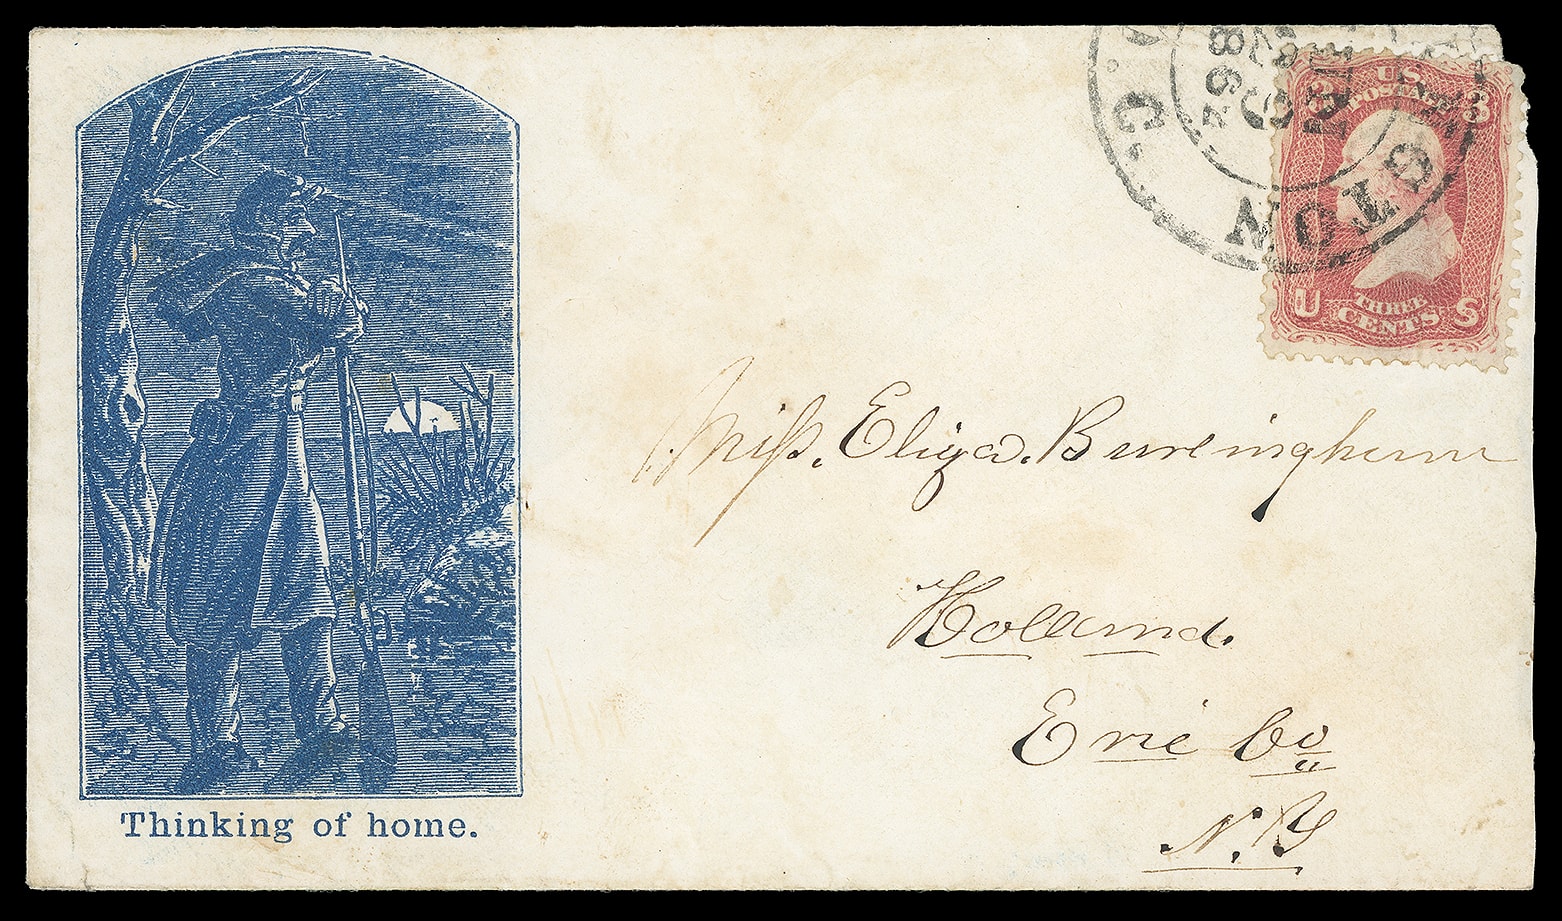 Thinking of home.
Miss. Eliza. Burlingham
Holland.
Erie Co
N.Y
GTON D.C.
1862
3 3
U.S. POSTAGE
U THREE CENTS S